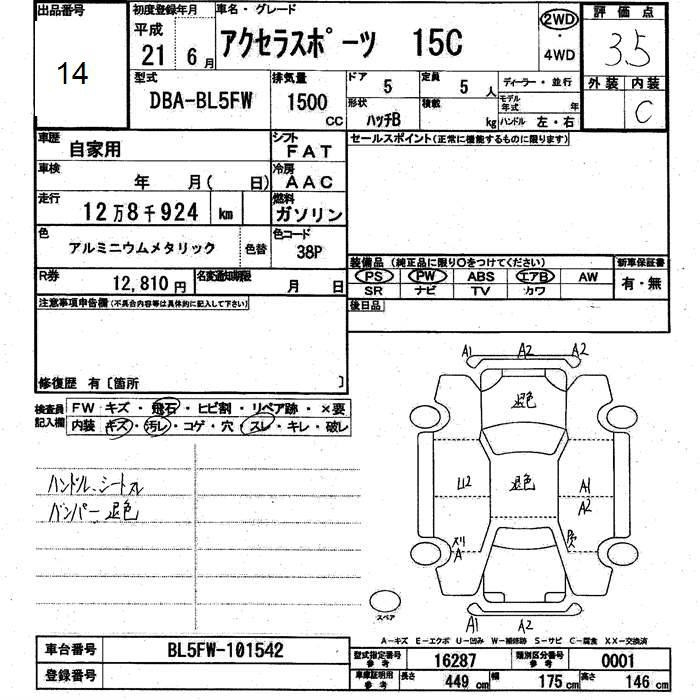 出品番号
14
初度登録年月
平成
21年 6月
車名・グレード
アクセラスポーツ 15C
2WD
・
4WD
評価点
3.5
外装 内装
C
型式
DBA-BL5FW
排気量
1500
CC
ドア
5
定員
5人
形状
ハッチB
積載
kg
ディーラー・並行
モデル年式 年
ハンドル 左・右
車歴
自家用
シフト
FAT
車検
年 月( 日)
冷房
AAC
走行
12万8千924 km
燃料
ガソリン
色
アルミニウムメタリック
色替
色コード
38P
R券
12,810円
名変通知期限
月 日
セールスポイント(正常に機能するものに限ります)
装備品 (純正品に限り○をつけてください)
PS PW ABS エアB AW
SR ナビ TV カワ
新車保証書
有・無
後日品
注意事項申告欄(不具合内容等は具体的に記入して下さい)
修復歴 有〔箇所 〕
検査員記入欄
FW キズ・飛石・ヒビ割・リペア跡・×要
内装 キズ・汚レ・コゲ・穴・スレ・キレ・破レ
ハンドル、シートスレ
バンパー退色
A1 A2 A2
退色
U2
退色
A1
A2
A
A1 A2
スペア
A-キズ E-エクボ U-凹み W-補修跡 S-サビ C-腐食 XX-交換済
車台番号
BL5FW-101542
登録番号
型式指定番号
参考
16287
類別区分番号
参考
0001
車庫証明用
参考
長さ
449cm
幅
175cm
高さ
146cm